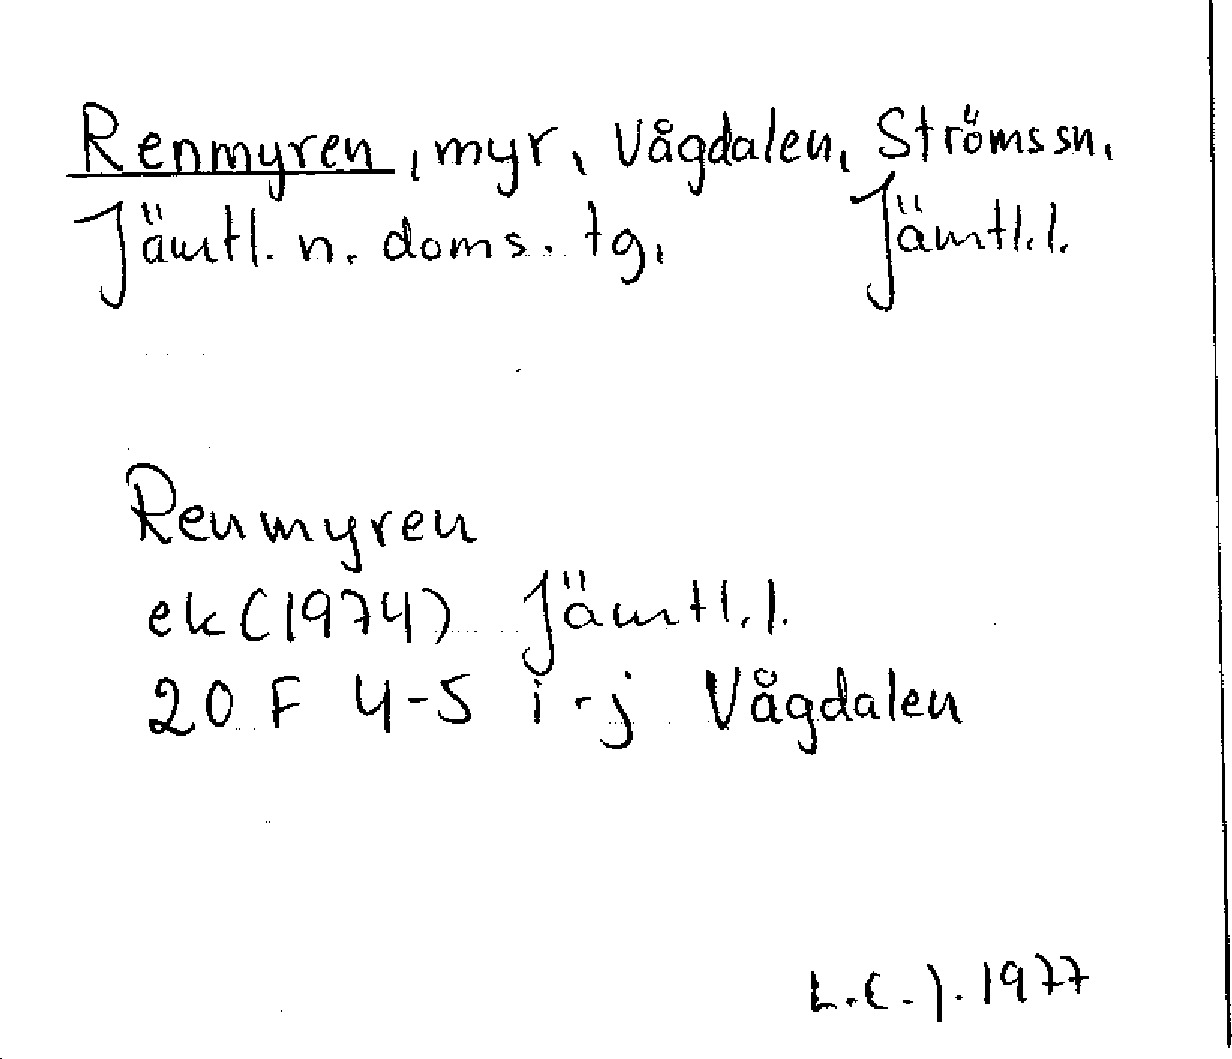 Renmyren, myr, Vågdalen, Ströms sn,
Jämtl. n. doms. tg, Jämtl. l.
Renmyren
ek (1974) Jämtl. l.
20 F 4-5 i-j Vågdalen
L.C.J. 1977